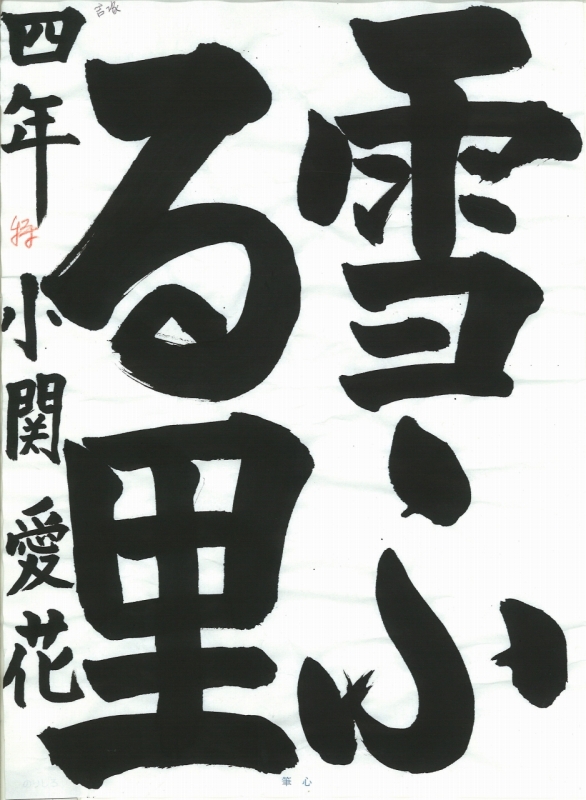 雪ふ
る里
四年
特
小関 愛花
筆心